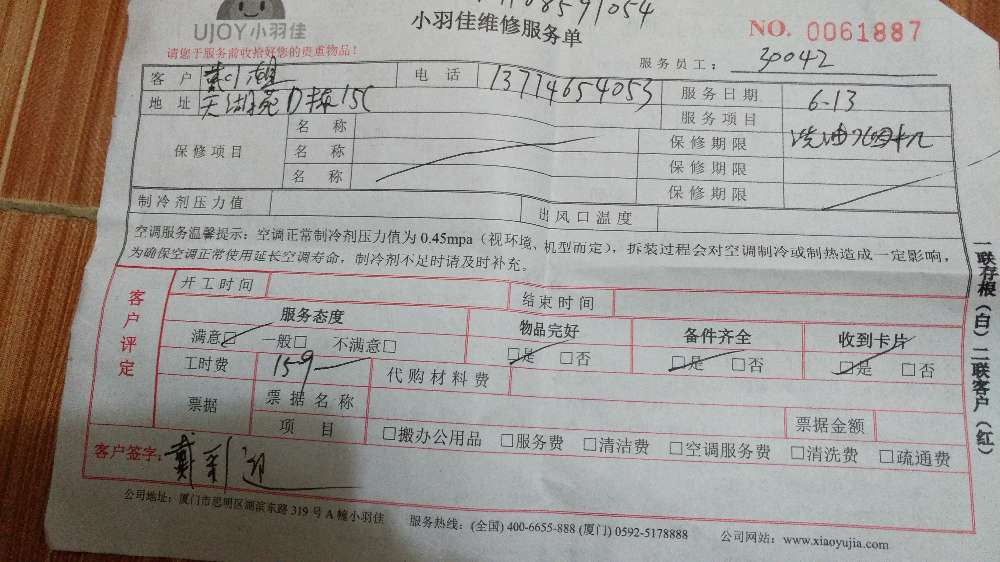 UJOY小羽佳
小羽佳维修服务单
NO. 0061887
请您于服务前收拾好您的贵重物品!
服务员工: 30042
客户 电话 13714654053 服务日期 6-13
地址 天湖苑D栋15C 服务项目 洗油烟机
保修项目 名称 保修期限
名称 保修期限
名称 保修期限
制冷剂压力值 出风口温度
空调服务温馨提示: 空调正常制冷剂压力值为 0.45mpa(视环境、机型而定), 拆装过程会对空调制冷或制热造成一定影响,
为确保空调正常使用延长空调寿命, 制冷剂不足时请及时补充。
客户评定
开工时间 结束时间
服务态度 物品完好 备件齐全 收到卡片
满意□ 一般□ 不满意□ □是 □否 □是 □否 □是 □否
工时费 159 代购材料费
票据 票据名称 票据金额
项目 □搬办公用品 □服务费 □清洁费 □空调服务费 □清洗费 □疏通费
客户签字: 戴
公司地址: 厦门市思明区湖滨东路 319 号 A 幢小羽佳 服务热线: (全国) 400-6655-888 (厦门) 0592-5178888 公司网站: www.xiaoyujia.com
一联存根(白)二联客户(红)